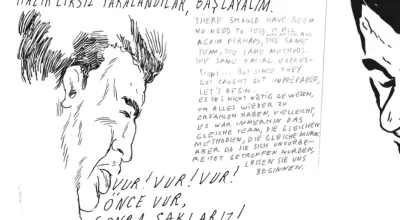 HAZIRLIKSIZ YAKALANDILAR, BAŞLAYALIM.
THERE SHOULD HAVE BEEN
NO NEED TO TELL IT ALL
AGAIN PERHAPS, THE SAME
TEAM, THE SAME METHODS,
THE SAME FACIAL EXPRES-
SIONS... BUT SINCE THEY
GOT CAUGHT OUT UNPREPARED,
LET'S BEGIN.
ES SEI NICHT NÖTIG GEWESEN,
UM ALLES WIEDER ZU
ERZÄHLEN HABEN, VIELLEICHT,
ES WAR IMMERHIN DAS
GLEICHE TEAM, DIE GLEICHEN
METHODEN, DIE GLEICHE MIMIK,
ABER DA SIE SICH UNVORBE-
REITET GETROFFEN WURDEN,
LASSEN SIE UNS
BEGINNEN.
VUR! VUR! VUR!
ÖNCE VUR,
SONRA SAKLARIZ!